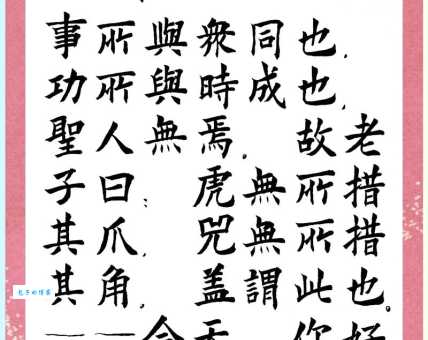 事所與衆同也.
功所與時成也.
聖人無焉. 故老
子曰: 虎無所措
其爪. 兕無所措
其角. 盖謂此也.
包子的博客